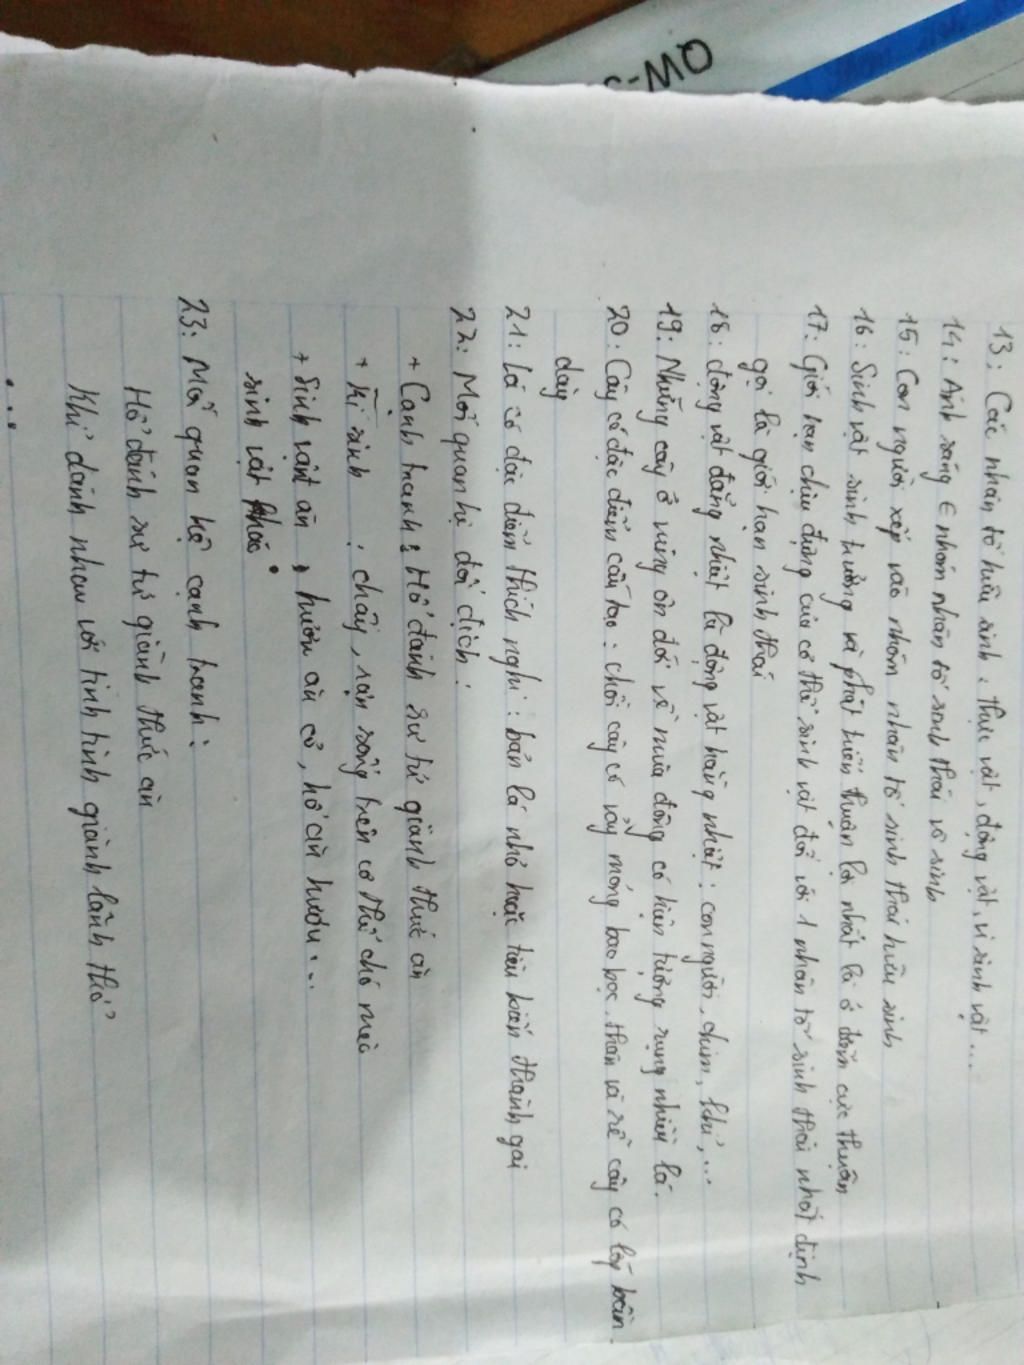 13: Các nhân tố hữu sinh: thực vật, động vật, vi sinh vật...
14: Ánh sáng ∈ nhóm nhân tố sinh thái vô sinh
15: Con người xếp vào nhóm nhân tố sinh thái hữu sinh
16: Sinh vật sinh trưởng và phát triển thuận lợi nhất là ở điểm cực thuận
17: Giới hạn chịu đựng của cơ thể sinh vật đối với 1 nhân tố sinh thái nhất định
gọi là giới hạn sinh thái
18: động vật đẳng nhiệt là động vật hằng nhiệt: con người, chim, khỉ,...
19: Những cây ở vùng ôn đới về mùa đông có hiện tượng rụng nhiều lá.
20: Cây có đặc điểm cấu tạo: chồi cây có vảy mỏng bao bọc, thân và rễ cây có lớp bần
dày
21: Lá có đặc điểm thích nghi: bản lá nhỏ hoặc tiêu biến thành gai
22: Mối quan hệ đối địch:
+ Cạnh tranh: Hổ đánh sư tử giành thức ăn
+ Kí sinh: chấy, rận sống trên cơ thể chó mèo
+ Sinh vật ăn, hươu ăn cỏ, hổ ăn hươu...
sinh vật khác
23: Mối quan hệ cạnh tranh:
Hổ đánh sư tử giành thức ăn
Khỉ đánh nhau với tinh tinh giành lãnh thổ
...
QW-